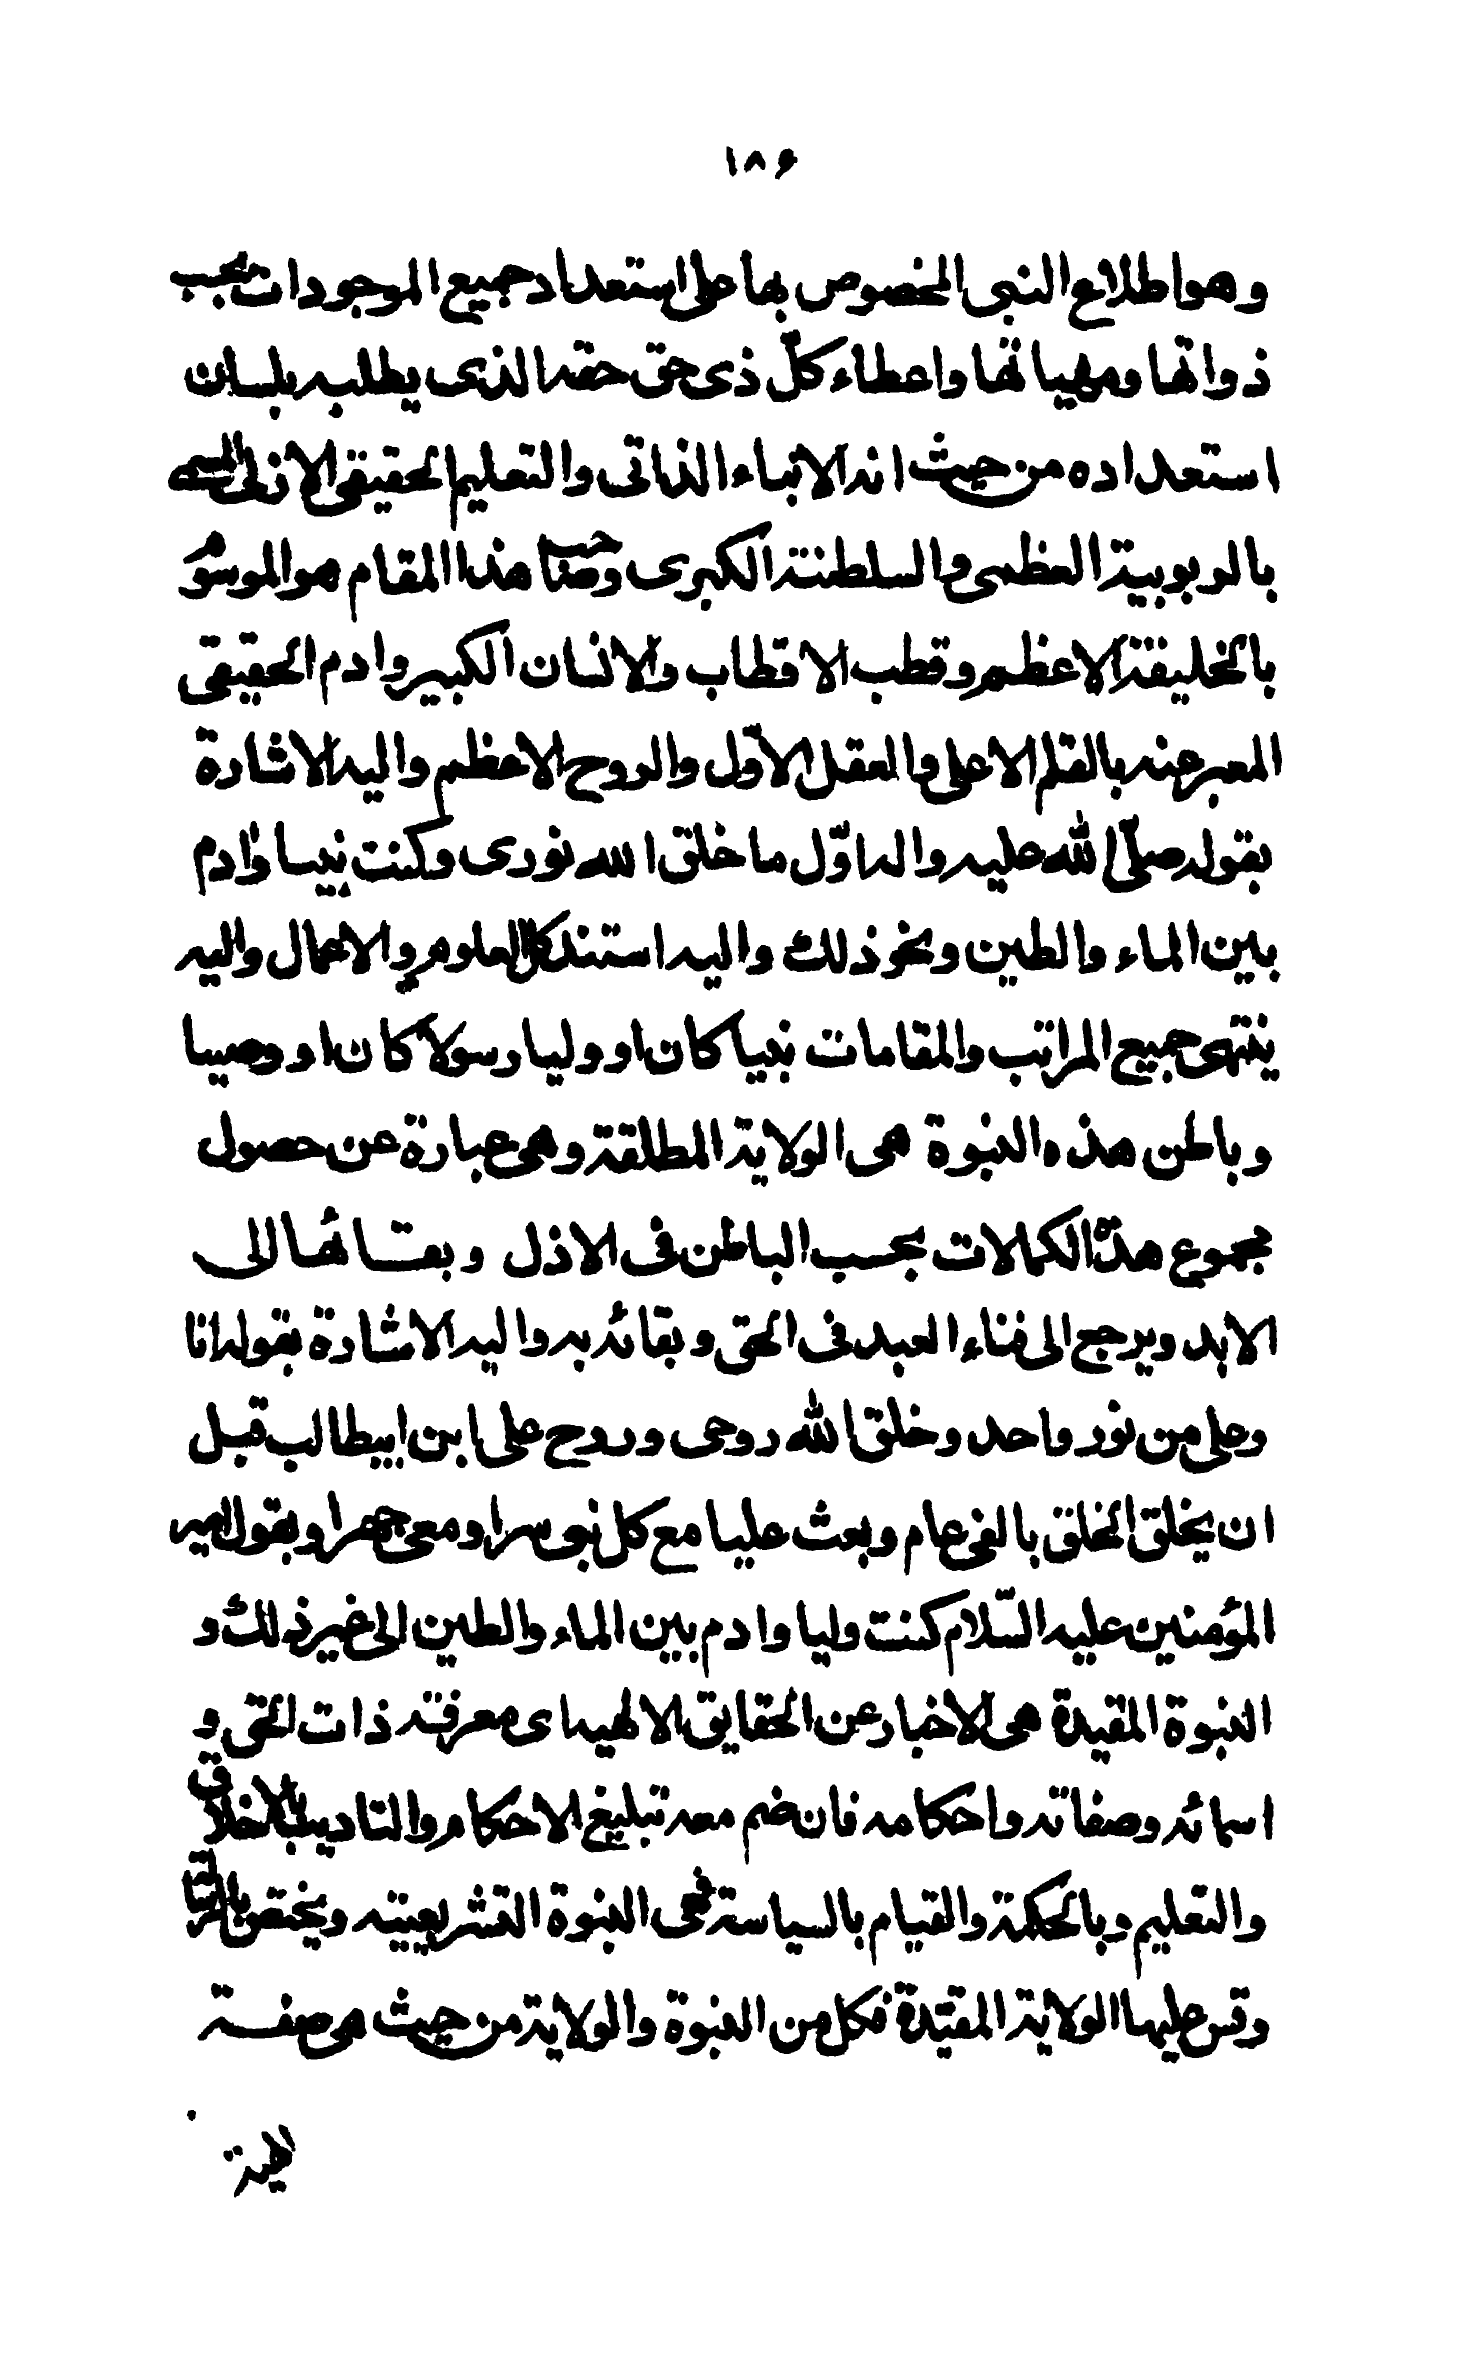 ۱۸۶
وهو اطلاع النبى المخصوص بها على استعداد جميع الموجودات بحسب
ذواتها ومهياتها واعطاء كلّ ذى حق حقه الذى يطلبه بلسان
استعداده من حيث انه الانباء الذاتى والتعليم الحقيقى الازلى المسمى
بالربوبية العظمى والسلطنة الكبرى وصاحب هذا المقام هو الموسوم
بالخليفة الاعظم وقطب الاقطاب والانسان الكبير وادم الحقيقى
المعبر عنه بالقلم الاعلى والعقل الاوّل والروح الاعظم واليه الاشارة
بقوله صلّى الله عليه واله اوّل ما خلق الله نورى وكنت نبيا وادم
بين الماء والطين ونحو ذلك واليه استند كل العلوم والاعمال واليه
ينتهى جميع المراتب والمقامات نبيا كان او وليا رسولا كان او وصيا
وباطن هذه النبوة هى الولاية المطلقة وهى عبارة عن حصول
مجموع هذه الكمالات بحسب الباطن فى الازل وبقائها الى
الابد ويرجع الى فناء العبد فى الحق وبقائه به واليه الاشارة بقوله انا
وعلى من نور واحد وخلق الله روحى وروح على ابن ابيطالب قبل
ان يخلق الخلق بالفى عام وبعث عليا مع كل نبى سرا ومعى جهرا وبقول امير
المؤمنين عليه السّلام كنت وليا وادم بين الماء والطين الى غير ذلك و
النبوة المقيدة هى الاخبار عن الحقايق الالهية اى معرفة ذات الحق و
اسمائه وصفاته واحكامه فان ضم معه تبليغ الاحكام والتاديب بالاخلاق
والتعليم وبالحكمة والقيام بالسياسة فهى النبوة التشريعيته ويختص بالرسالة
وقس عليها الولاية المقيّدة فكل من النبوة والولاية من حيث هى صفة
الهية